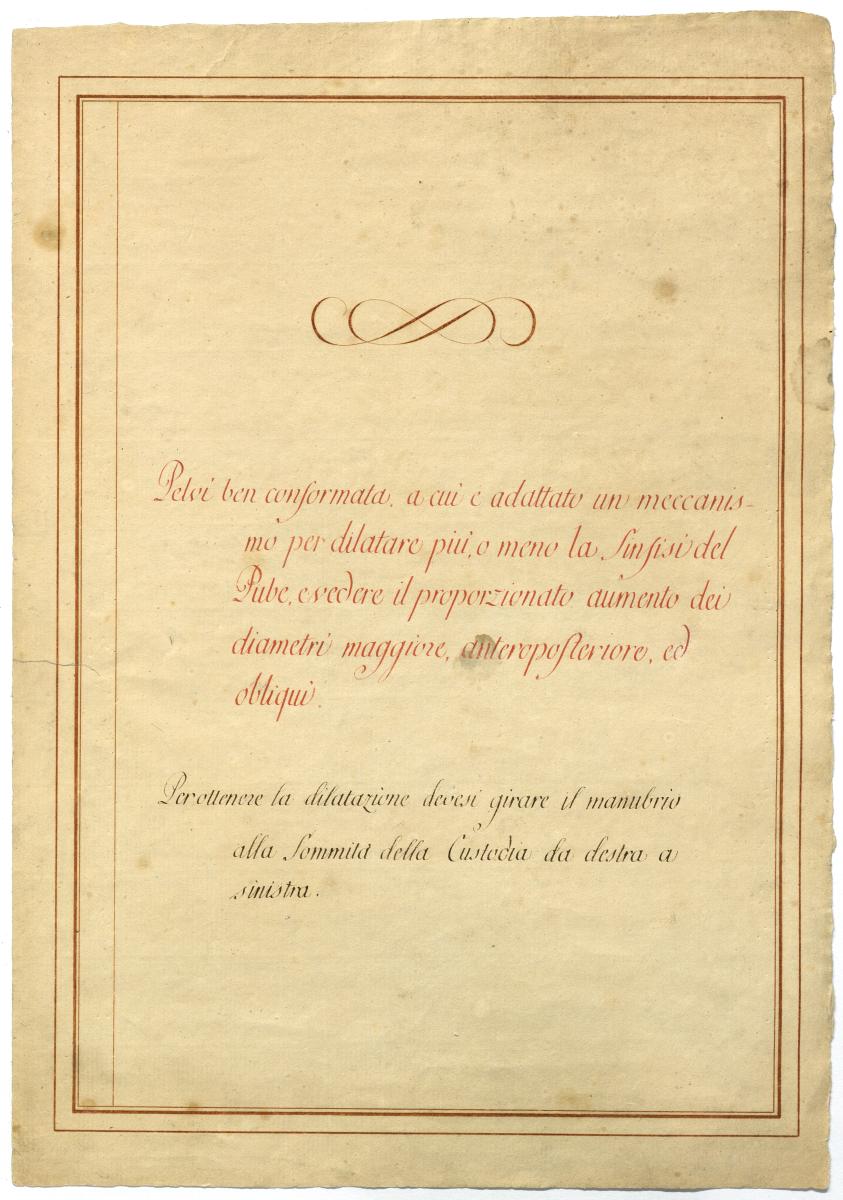 Pelvi ben conformata, a cui e adattato un meccanis-
mo per dilatare più, o meno la Sinfisi del
Pube, e vedere il proporzionato aumento dei
diametri maggiore, anteroposteriore, ed
obliqui.
Per ottenere la dilatazione devesi girare il manubrio
alla Sommità della Custodia da destra a
sinistra.